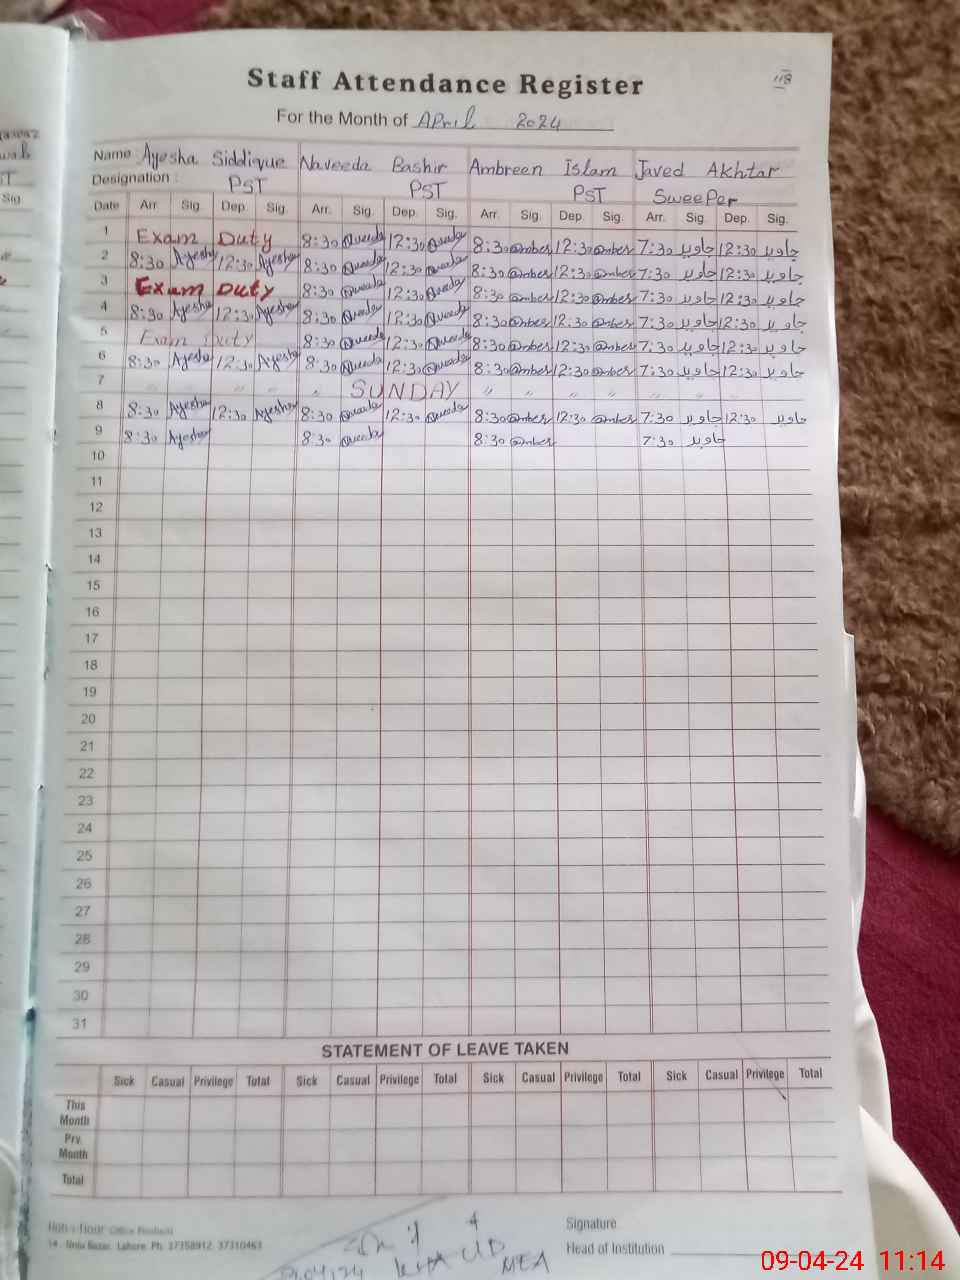 Staff Attendance Register
118
For the Month of April 2024
Name : Ayesha Siddique Naveeda Bashir Ambreen Islam Javed Akhtar
Designation : PST PST PST Sweeper
Date Arr. Sig. Dep. Sig. Arr. Sig. Dep. Sig. Arr. Sig. Dep. Sig. Arr. Sig. Dep. Sig.
1 Exam Duty 8:30 12:30 8:30 12:30 7:30 جاوید 12:30 جاوید
2 8:30 Ayesha 12:30 Ayesha 8:30 12:30 8:30 12:30 7:30 جاوید 12:30 جاوید
3 Exam Duty 8:30 12:30 8:30 12:30 7:30 جاوید 12:30 جاوید
4 8:30 Ayesha 12:30 Ayesha 8:30 12:30 8:30 12:30 7:30 جاوید 12:30 جاوید
5 Exam Duty 8:30 12:30 8:30 12:30 7:30 جاوید 12:30 جاوید
6 8:30 Ayesha 12:30 Ayesha 8:30 12:30 8:30 12:30 7:30 جاوید 12:30 جاوید
7 " " " " " SUNDAY " " " " " " "
8 8:30 Ayesha 12:30 Ayesha 8:30 12:30 8:30 12:30 7:30 جاوید 12:30 جاوید
9 8:30 Ayesha 8:30 8:30 7:30 جاوید
10
11
12
13
14
15
16
17
18
19
20
21
22
23
24
25
26
27
28
29
30
31
STATEMENT OF LEAVE TAKEN
Sick Casual Privilege Total Sick Casual Privilege Total Sick Casual Privilege Total Sick Casual Privilege Total
This Month
Prv. Month
Total
Signature
Head of Institution
14 - Urdu Bazar, Lahore. Ph: 37358912, 37310463
MEA
09-04-24 11:14